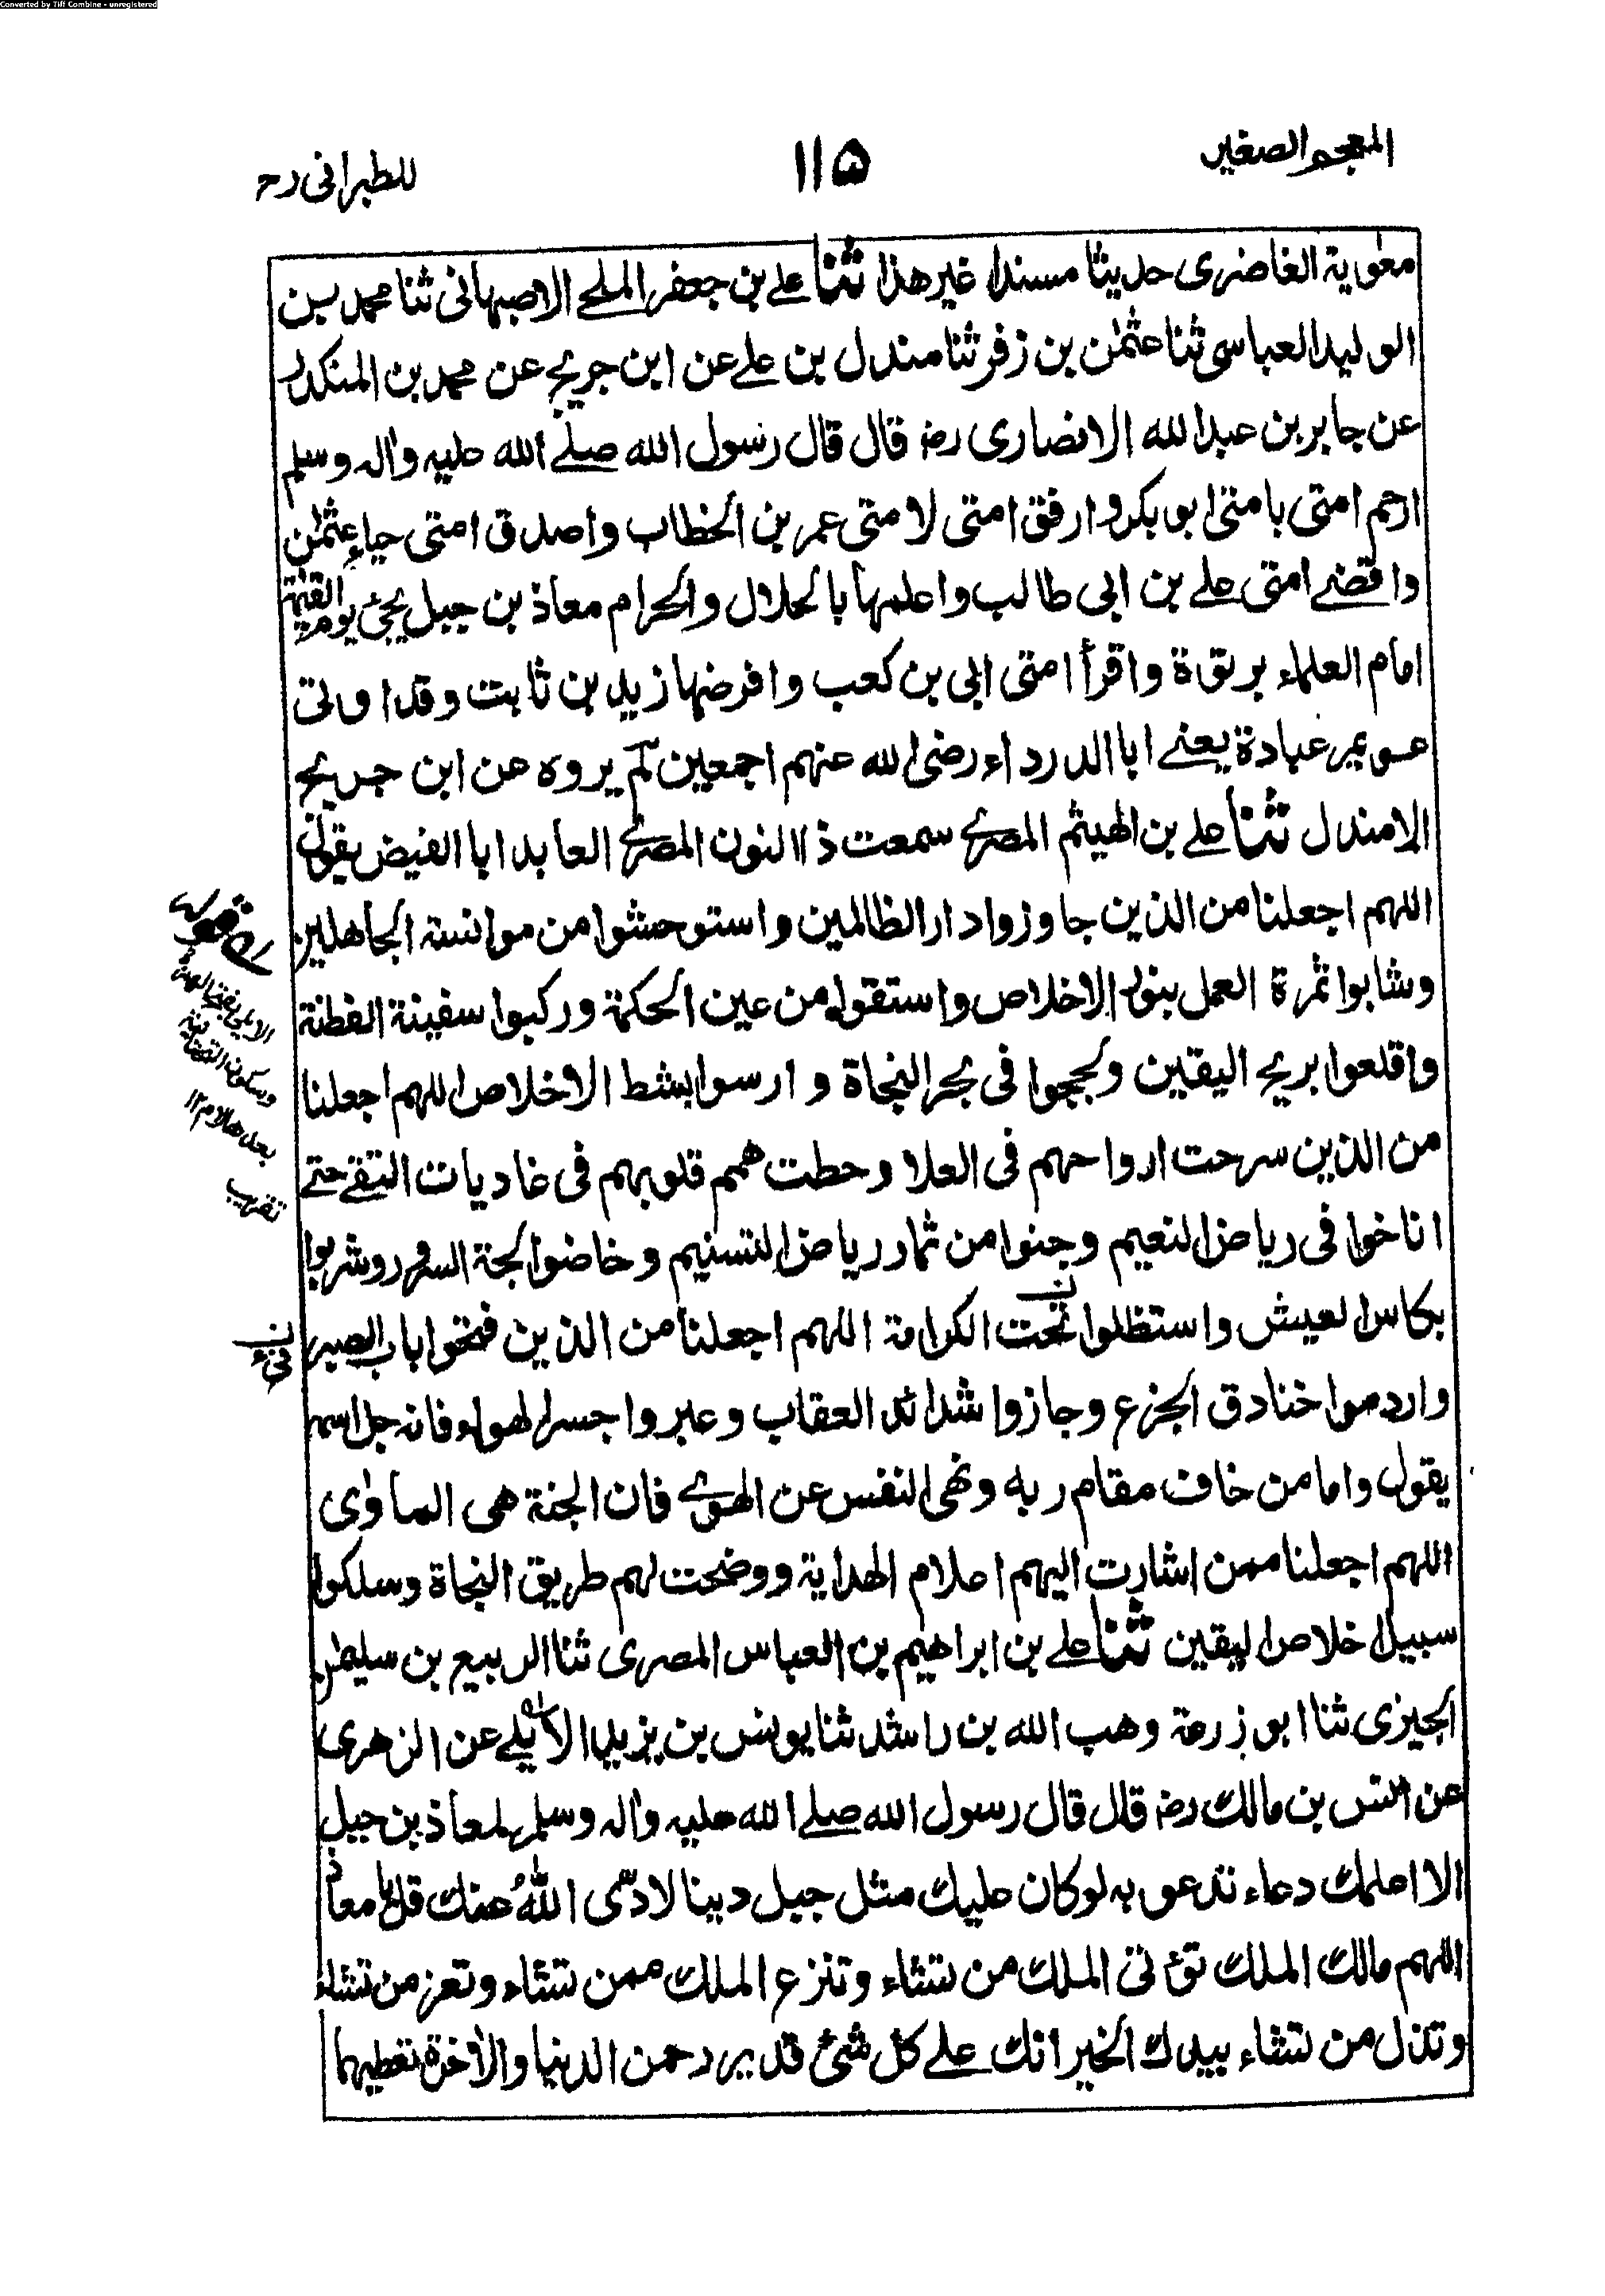 Converted by Tiff Combine - unregistered
المعجم الصغير
١١٥
للطبرانى رح
معٰوية الغاضرى حديثا مسندا غير هذا ثنا علے بن جعفر الملحے الاصبهانى ثنا محمد بن
الوليد العباسى ثنا عثمٰن بن زفر ثنا مندل بن علے عن ابن جريج عن محمد بن المنكدر
عن جابر بن عبد الله الانصارى رضـ قال قال رسول الله صلے الله عليه واٰله وسلم
ارحم امتى بامتى ابو بكر وارفق امتى لامتى عمر بن الخطاب واصدق امتى حياء عثمٰن
واقضے امتى علے بن ابى طالب واعلمها بالحلال والحرام معاذ بن جبل يجئ يوم القيٰمة
امام العلماء بربوة واقرأ امتى ابى بن كعب وافرضها زيد بن ثابت وقد اوتى
عويمر عبادة يعنے ابا الدرداء رضى الله عنهم اجمعين لم يروه عن ابن جريج
الا مندل ثنا علے بن الهيثم المصرے سمعت ذا النون المصرے العابد ابا الفيض يقول
اللهم اجعلنا من الذين جاوزوا دار الظالمين واستوحشوا من موانسة الجاهلين
وشابوا ثمرة العمل بنور الاخلاص واستقوا من عين الحكمة وركبوا سفينة الفطنة
واقلعوا بريح اليقين ولججوا فى بحر النجاة وارسوا بشط الاخلاص اللهم اجعلنا
من الذين سرحت ارواحهم فى العلا وحطت همم قلوبهم فى غاديات التقے حتے
اناخوا فى رياض النعيم وجنوا من ثمار رياض التسنيم وخاضوا لجة السرور وشربوا
بكاس العيش واستظلوا تحت الكرامة اللهم اجعلنا من الذين فتحوا باب الصبر
واردموا خنادق الجزع وجازوا شدائد العقاب وعبروا جسر الهواء فانه جل اسمه
يقول واما من خاف مقام ربه ونهى النفس عن الهوے فان الجنة هى الماوٰى
اللهم اجعلنا ممن اشارت اليهم اعلام الهداية ووضحت لهم طريق النجاة وسلكوا
سبيل اخلاص اليقين ثنا علے بن ابراهيم بن العباس المصرى ثنا الربيع بن سليمٰن
الجيزى ثنا ابو زرعة وهب الله بن راشد ثنا يونس بن يزيد الايلے عن الزهرى
عن انس بن مالك رضـ قال قال رسول الله صلے الله عليه واٰله وسلم لمعاذ بن جبل
الا اعلمك دعاء تدعو به لو كان عليك مثل جبل دينا لادّى اللهُ عنك قل يا معاذ
اللهم مالك الملك تؤتى الملك من تشاء وتنزع الملك ممن تشاء وتعز من تشاء
وتذل من تشاء بيدك الخير انك علے كل شئ قدير رحمن الدنيا والاٰخرة تعطيهما
قوله
الايلى بفتح الهمزة
وسكون التحتانية
بعدها لام ١٢
تقريب
فىء